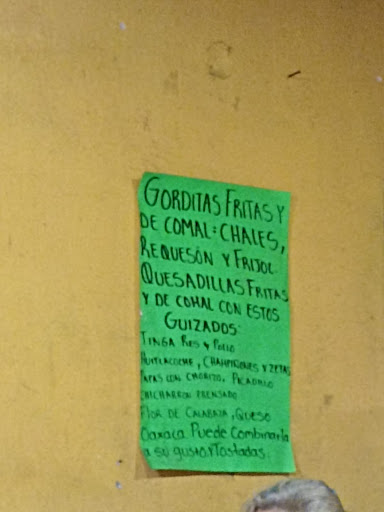 GORDITAS FRITAS Y
DE COMAL: CHALES,
REQUESÓN Y FRIJOL.
QUESADILLAS FRITAS
Y DE COMAL CON ESTOS
GUIZADOS:
TINGA RES Y POLLO
HUITLACOCHE, CHAMPIÑONES Y ZETAS
PAPAS CON CHORIZO, PICADILLO
CHICHARRON PRENSADO
FLOR DE CALABAZA, QUESO
Oaxaca. Puede Combinarla
a su gusto. Y Tostadas.